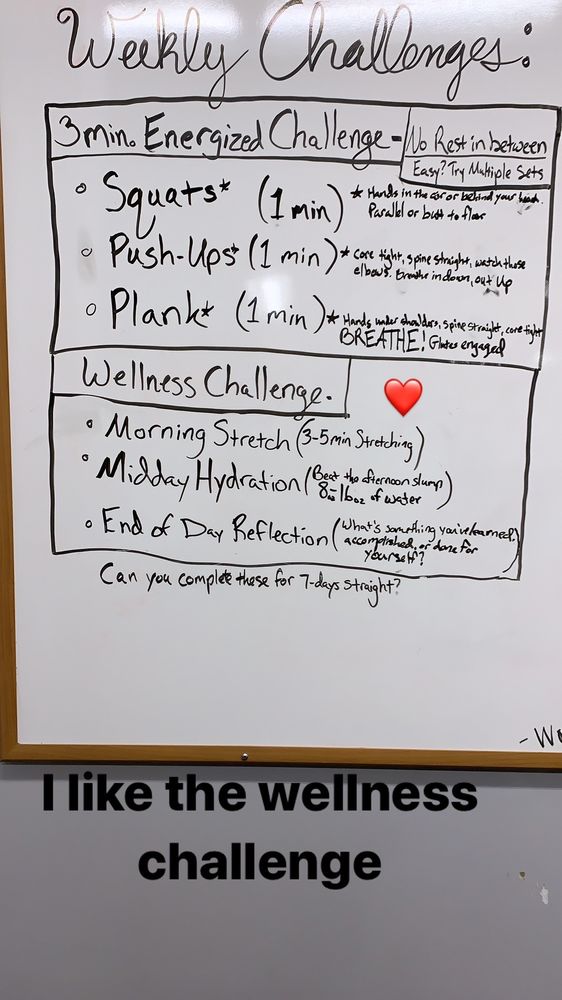 Weekly Challenges:
3min. Energized Challenge -
No Rest in between
Easy? Try Multiple Sets
• Squats* (1 min)
* Hands in the air or behind your head.
Parallel or butt to floor
• Push-Ups* (1 min)
* Core tight, spine straight, watch those
elbows. Breathe in down, out Up
• Plank* (1 min)
* Hands under shoulders, spine straight, core tight
BREATHE! Glutes engaged
Wellness Challenge.
• Morning Stretch (3-5min Stretching)
• Midday Hydration (Beat the afternoon slump
of water)
• End of Day Reflection (What's something you've learned,
accomplished, or done for
yourself?)
Can you complete these for 7-days straight?
I like the wellness
challenge